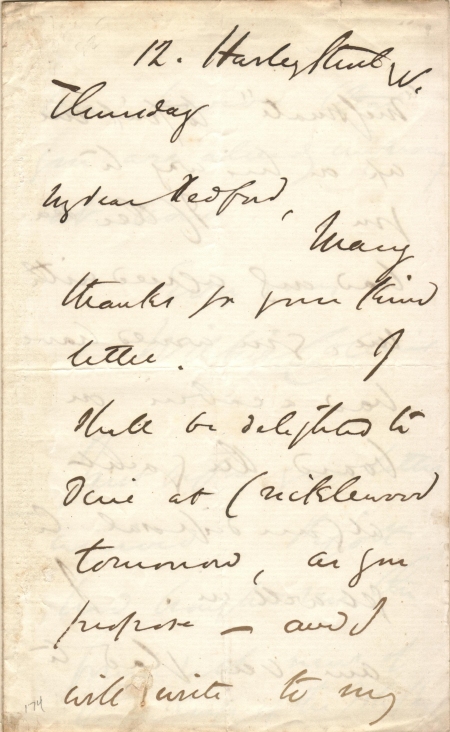 12. Harley Street W.
Thursday
My dear Redford,
Many
thanks for your kind
letter. I
shall be delighted to
dine at Cricklewood
tomorrow, as you
propose — and I
will write to my
174